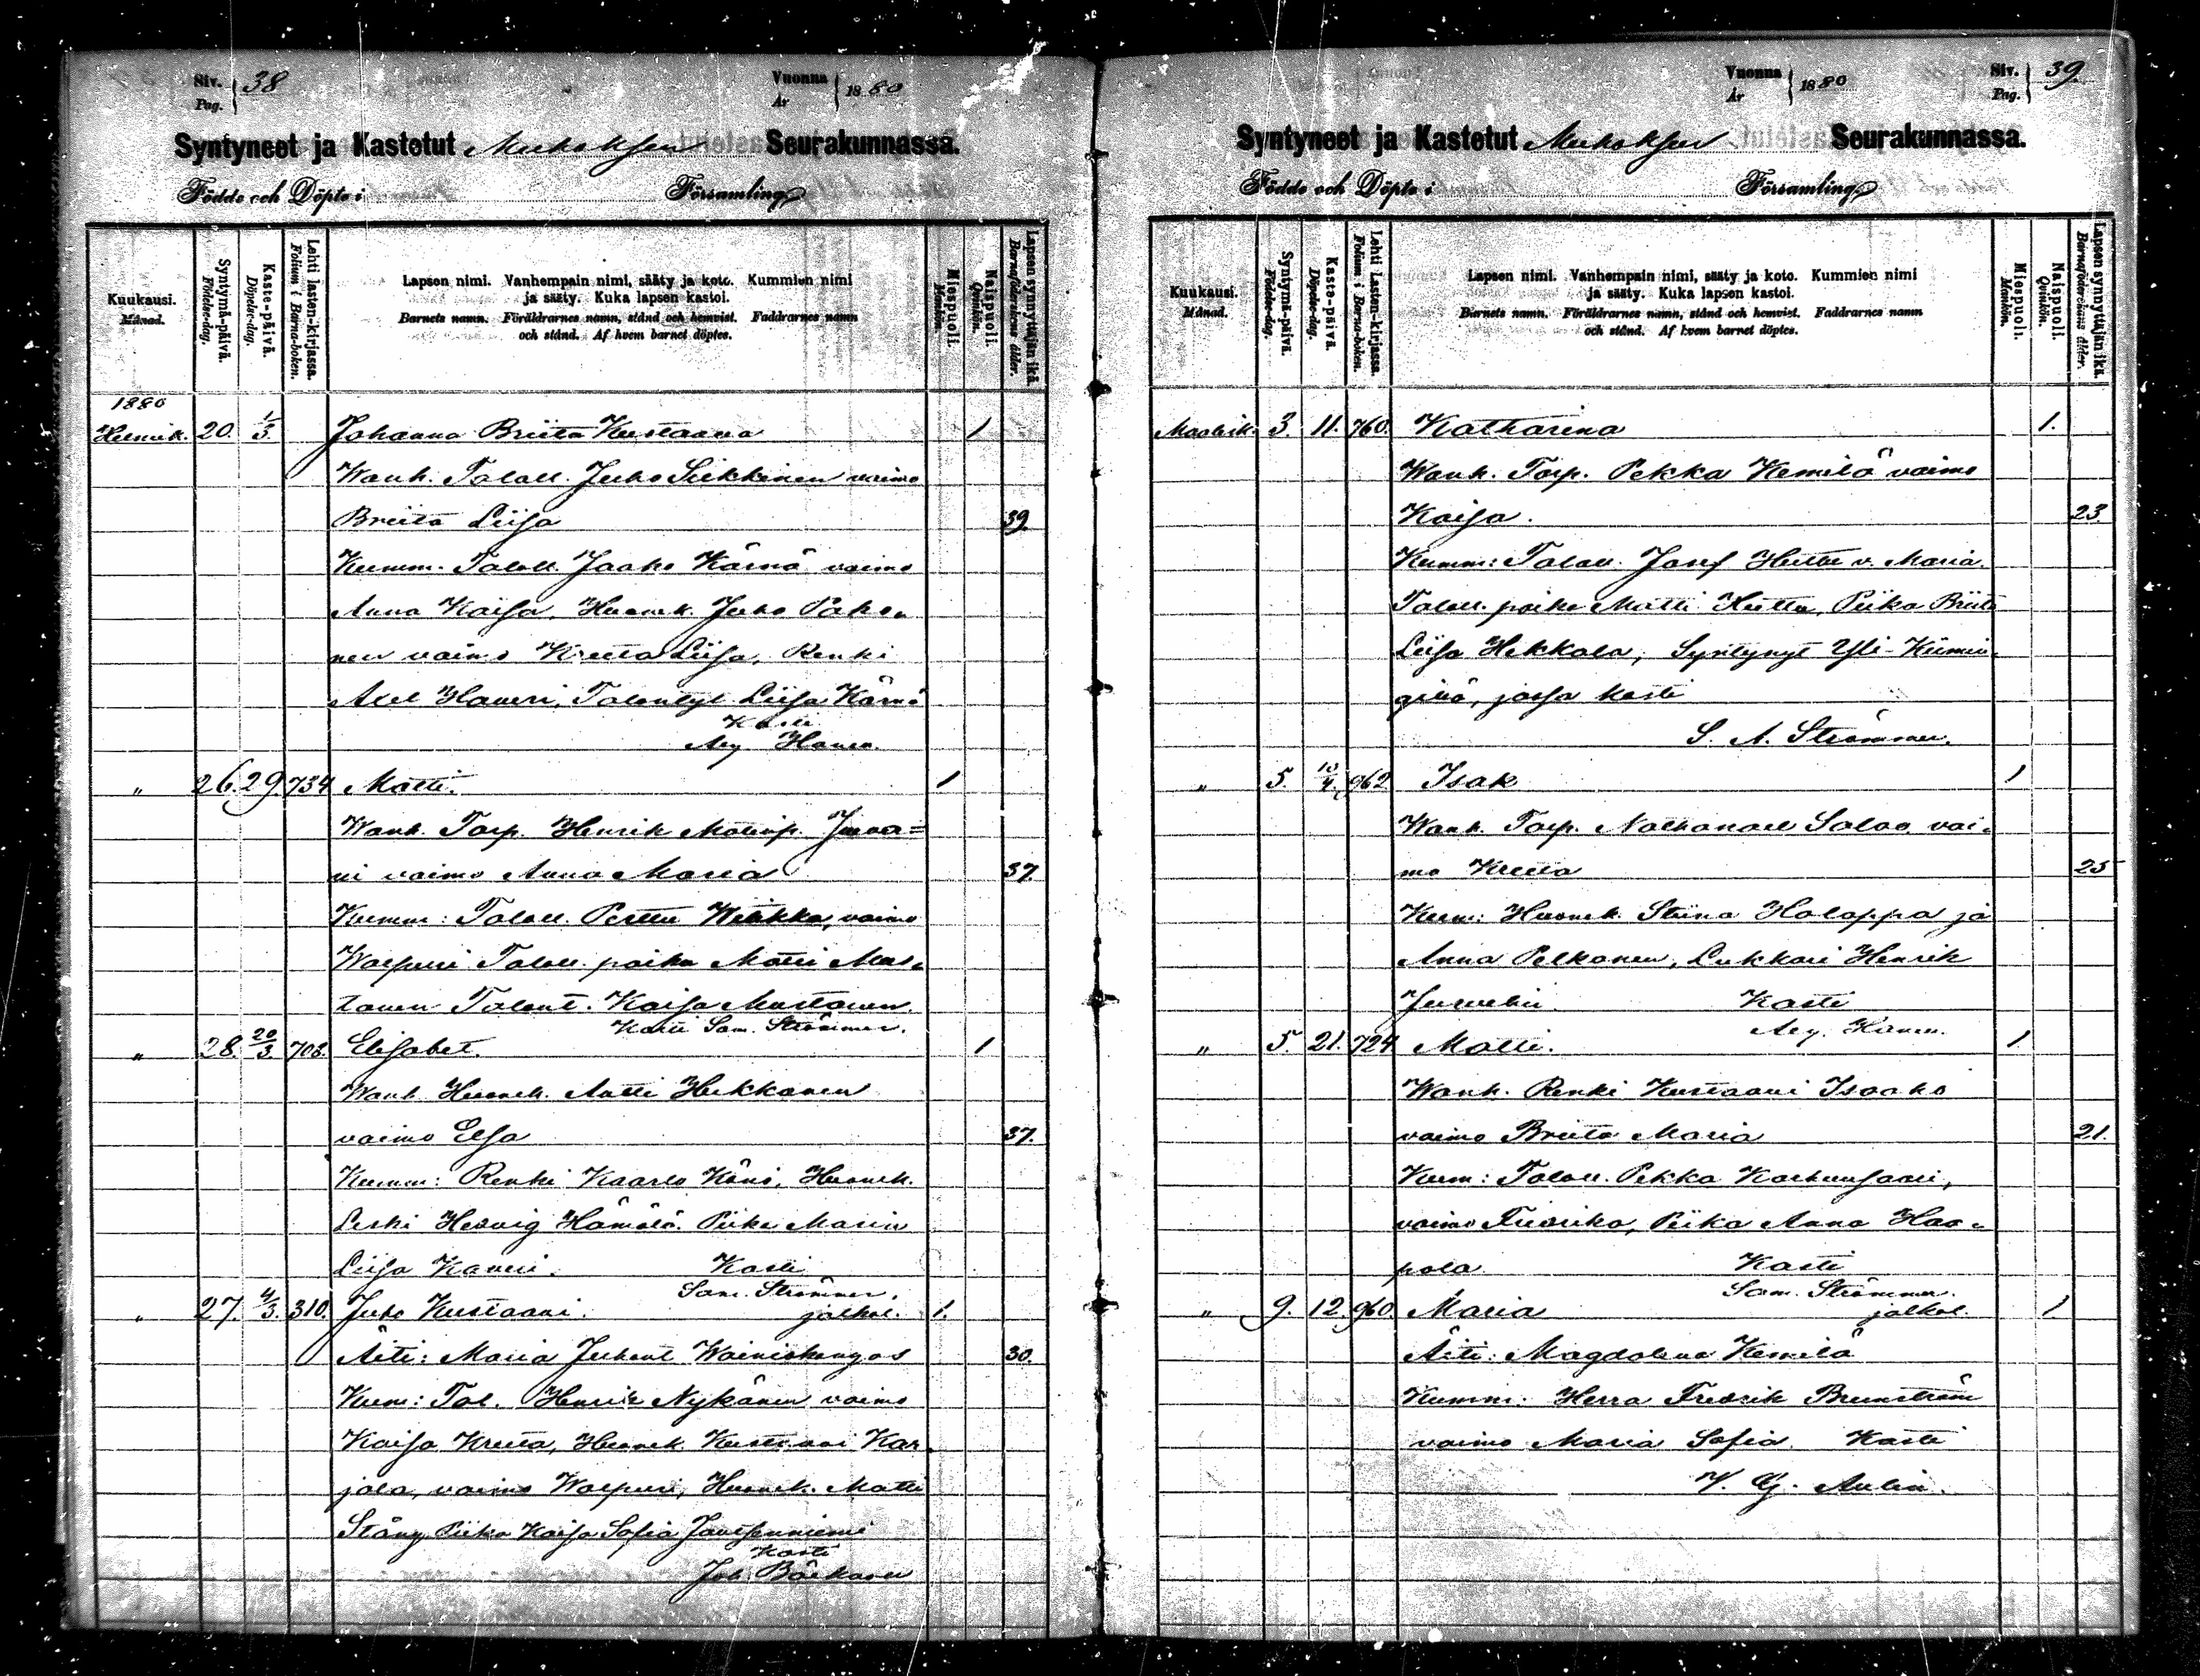 Siv. Pag. 38
Vuonna År 1880
Syntyneet ja Kastetut Muhoksen Seurakunnassa.
Födde och Döpte i Församling
Kuukausi. Månad.
Syntymä-päivä. Födelse-dag.
Kaste-päivä. Döpelse-dag.
Lehti lasten-kirjassa. Folium i Barna-boken.
Lapsen nimi. Vanhempain nimi, sääty ja koto. Kummien nimi
ja sääty. Kuka lapsen kastoi.
Barnets namn. Föräldrarnes namn, stånd och hemvist. Faddrarnes namn
och stånd. Af hvem barnet döptes.
Miespuoli. Mankön.
Naispuoli. Qvinkön.
Lapsen synnyttäjän ikä. Barnaföderskans ålder.
1880
Helmik. 20. 1/3 Johanna Briita Kustaava 1
Wanh. Taloll. Juho Siekkinen vaimo
Briita Liisa 39.
Kumm. Taloll. Jaako Kärnä vaimo
Anna Kaisa, Huonek. Juho Paho-
nen vaimo Kreeta Liisa, Renki
Axel Haveri, Talontyt. Liisa Kärnä
Kasti
Aug. Hanen.
" 26. 29. 734 Matti. 1
Wanh. Torp. Henrik Matinp. Juva-
ni vaimo Anna Maria 37.
Kumm: Taloll. Perttu vaimo
Walpuri Taloll. poika Matti Mus-
tonen Talont. Kaisa Mustonen.
Kasti Sam. Strömmer.
" 28. 20/3 708. Elisabet. 1
Wanh. Huonek. Antti Heikkanen
vaimo Elsa 37.
Kumm: Renki Kaarlo Huonek.
Leski Hedvig Hämälä. Piika Maria
Liisa Kaveri. Kasti
Sam. Strömmer.
" 27. 4/3. 310. Juho Kustaavi. jalkol. 1.
Äiti: Maria Juhont. Wainiokangas 30.
Kum: Tal. Henrik Nykänen vaimo
Kaisa Kreeta, Huonek. Kustaavi Kar-
jala, vaimo Walpuri, Huonek. Matti
Stång Piika Kaisa Sofia
Kasti
Joh. Bäckman
Vuonna År 1880
Siv. Pag. 39.
Syntyneet ja Kastetut Muhoksen Seurakunnassa.
Födde och Döpte i Församling
Kuukausi. Månad.
Syntymä-päivä. Födelse-dag.
Kaste-päivä. Döpelse-dag.
Lehti Lasten-kirjassa. Folium i Barna-boken.
Lapsen nimi. Vanhempain nimi, sääty ja koto. Kummien nimi
ja sääty. Kuka lapsen kastoi.
Barnets namn. Föräldrarnes namn, stånd och hemvist. Faddrarnes namn
och stånd. Af hvem barnet döptes.
Miespuoli. Mankön.
Naispuoli. Qvinkön.
Lapsen synnyttäjän ikä. Barnaföderskans ålder.
Maalisk. 3. 11. 760. Katharina 1.
Wanh. Torp. Pekka Kemilä vaimo
Kaisa. 23
Kumm: Taloll. Josef Huttu v. Maria.
Taloll. poika Matti Huttu, Piika Briita
Liisa Hekkala, Syntynyt Yli-Kiimin-
gillä, jossa kasti
S. A. Strömmer.
" 5. 10/4. 962. Isak 1
Wanh. Torp. Nathanael Salao vai-
mo Kreeta 25
Kum: Huonek. Stiina Holappa ja
Anna Pelkonen, Lukkari Henrik
Juvelin Kasti
Aug. Hanen.
" 5. 21. 724. Matti. 1.
Wanh. Renki Kustaavi Isaaho
vaimo Briita Maria 21.
Kum: Taloll. Pekka Karhunsaari,
vaimo Fredrika, Piika Anna Haa-
pola Kasti
Sam. Strömmer.
" 9. 12. 960. Maria jalkol. 1
Äiti: Magdalena Kemilä
Kumm: Herra Fredrik Brunström
vaimo Maria Sofia. Kasti
V. Gj. Aulin.